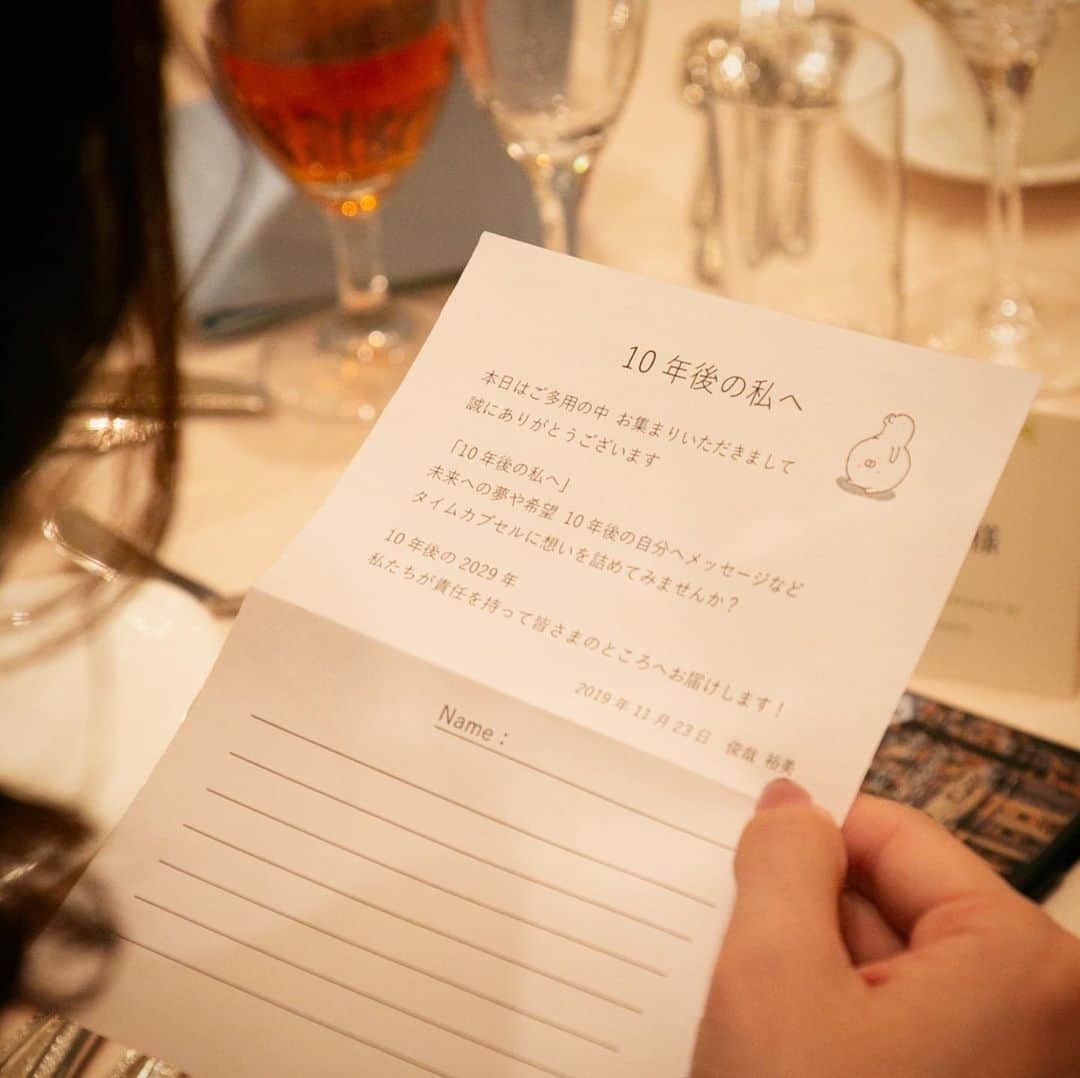 10年後の私へ
本日はご多用の中 お集まりいただきまして
誠にありがとうございます
「10年後の私へ」
未来への夢や希望 10年後の自分へメッセージなど
タイムカプセルに想いを詰めてみませんか？
10年後の2029年
私たちが責任を持って皆さまのところへお届けします！
2019年11月23日 俊哉 裕美
Name：
様